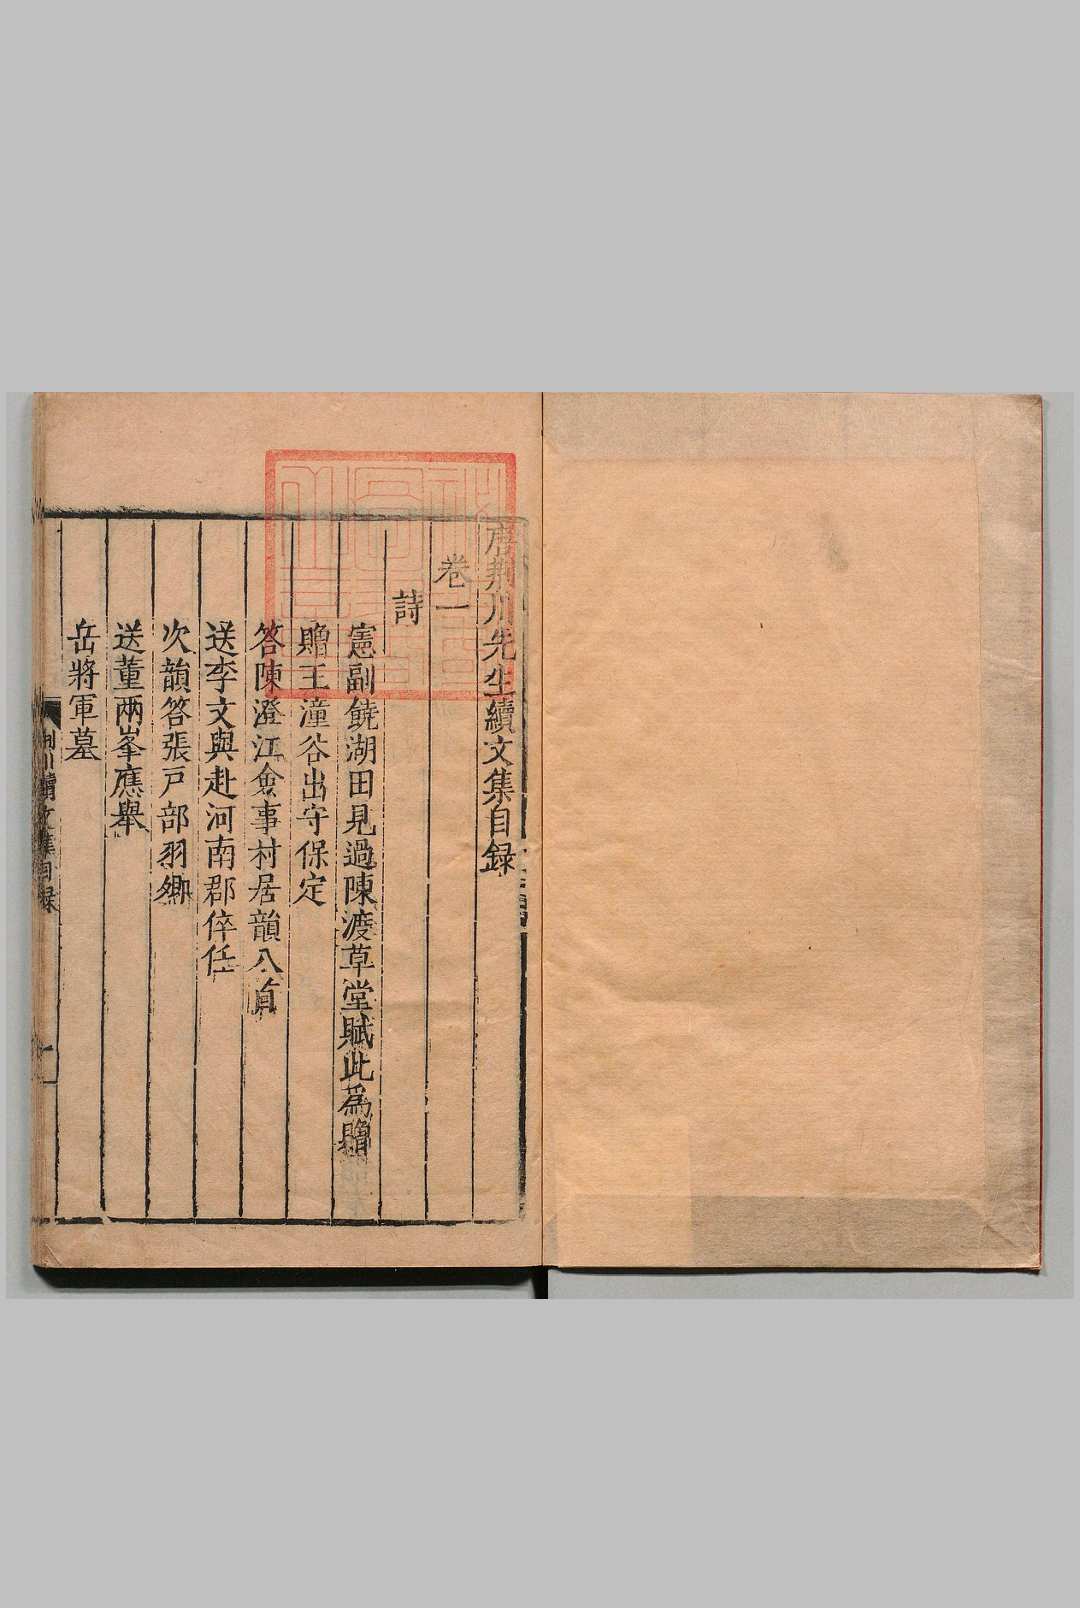 唐荊川先生續文集目録
卷一
詩
憲副饒湖田見過陳渡草堂賦此爲贈
贈王潼谷出守保定
答陳澄江僉事村居韻八首
送李文與赴河南郡倅任
次韻答張戸部羽卿
送董兩峯應舉
岳將軍墓
荊川續文集目録